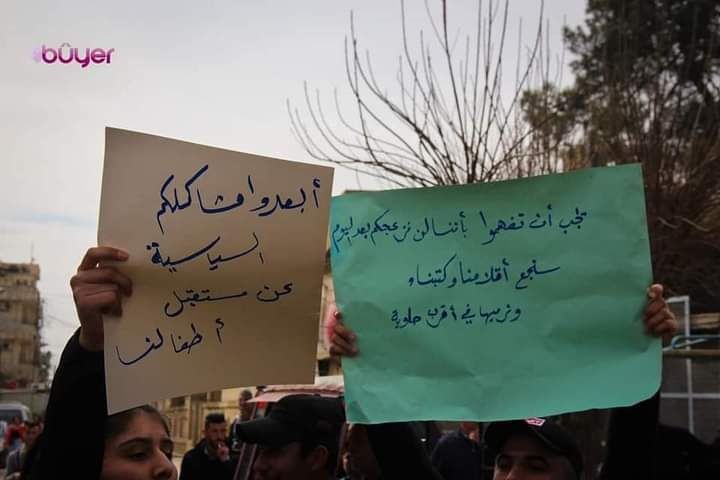 bûyer
أبعدوا مشاكلكم
السياسية
عن مستقبل
أطفالنا
يجب أن تفهموا بأننا لن نزعجكم بعد اليوم
سنجمع أقلامنا وكتبناء
ونرميها في أقرب حاوية